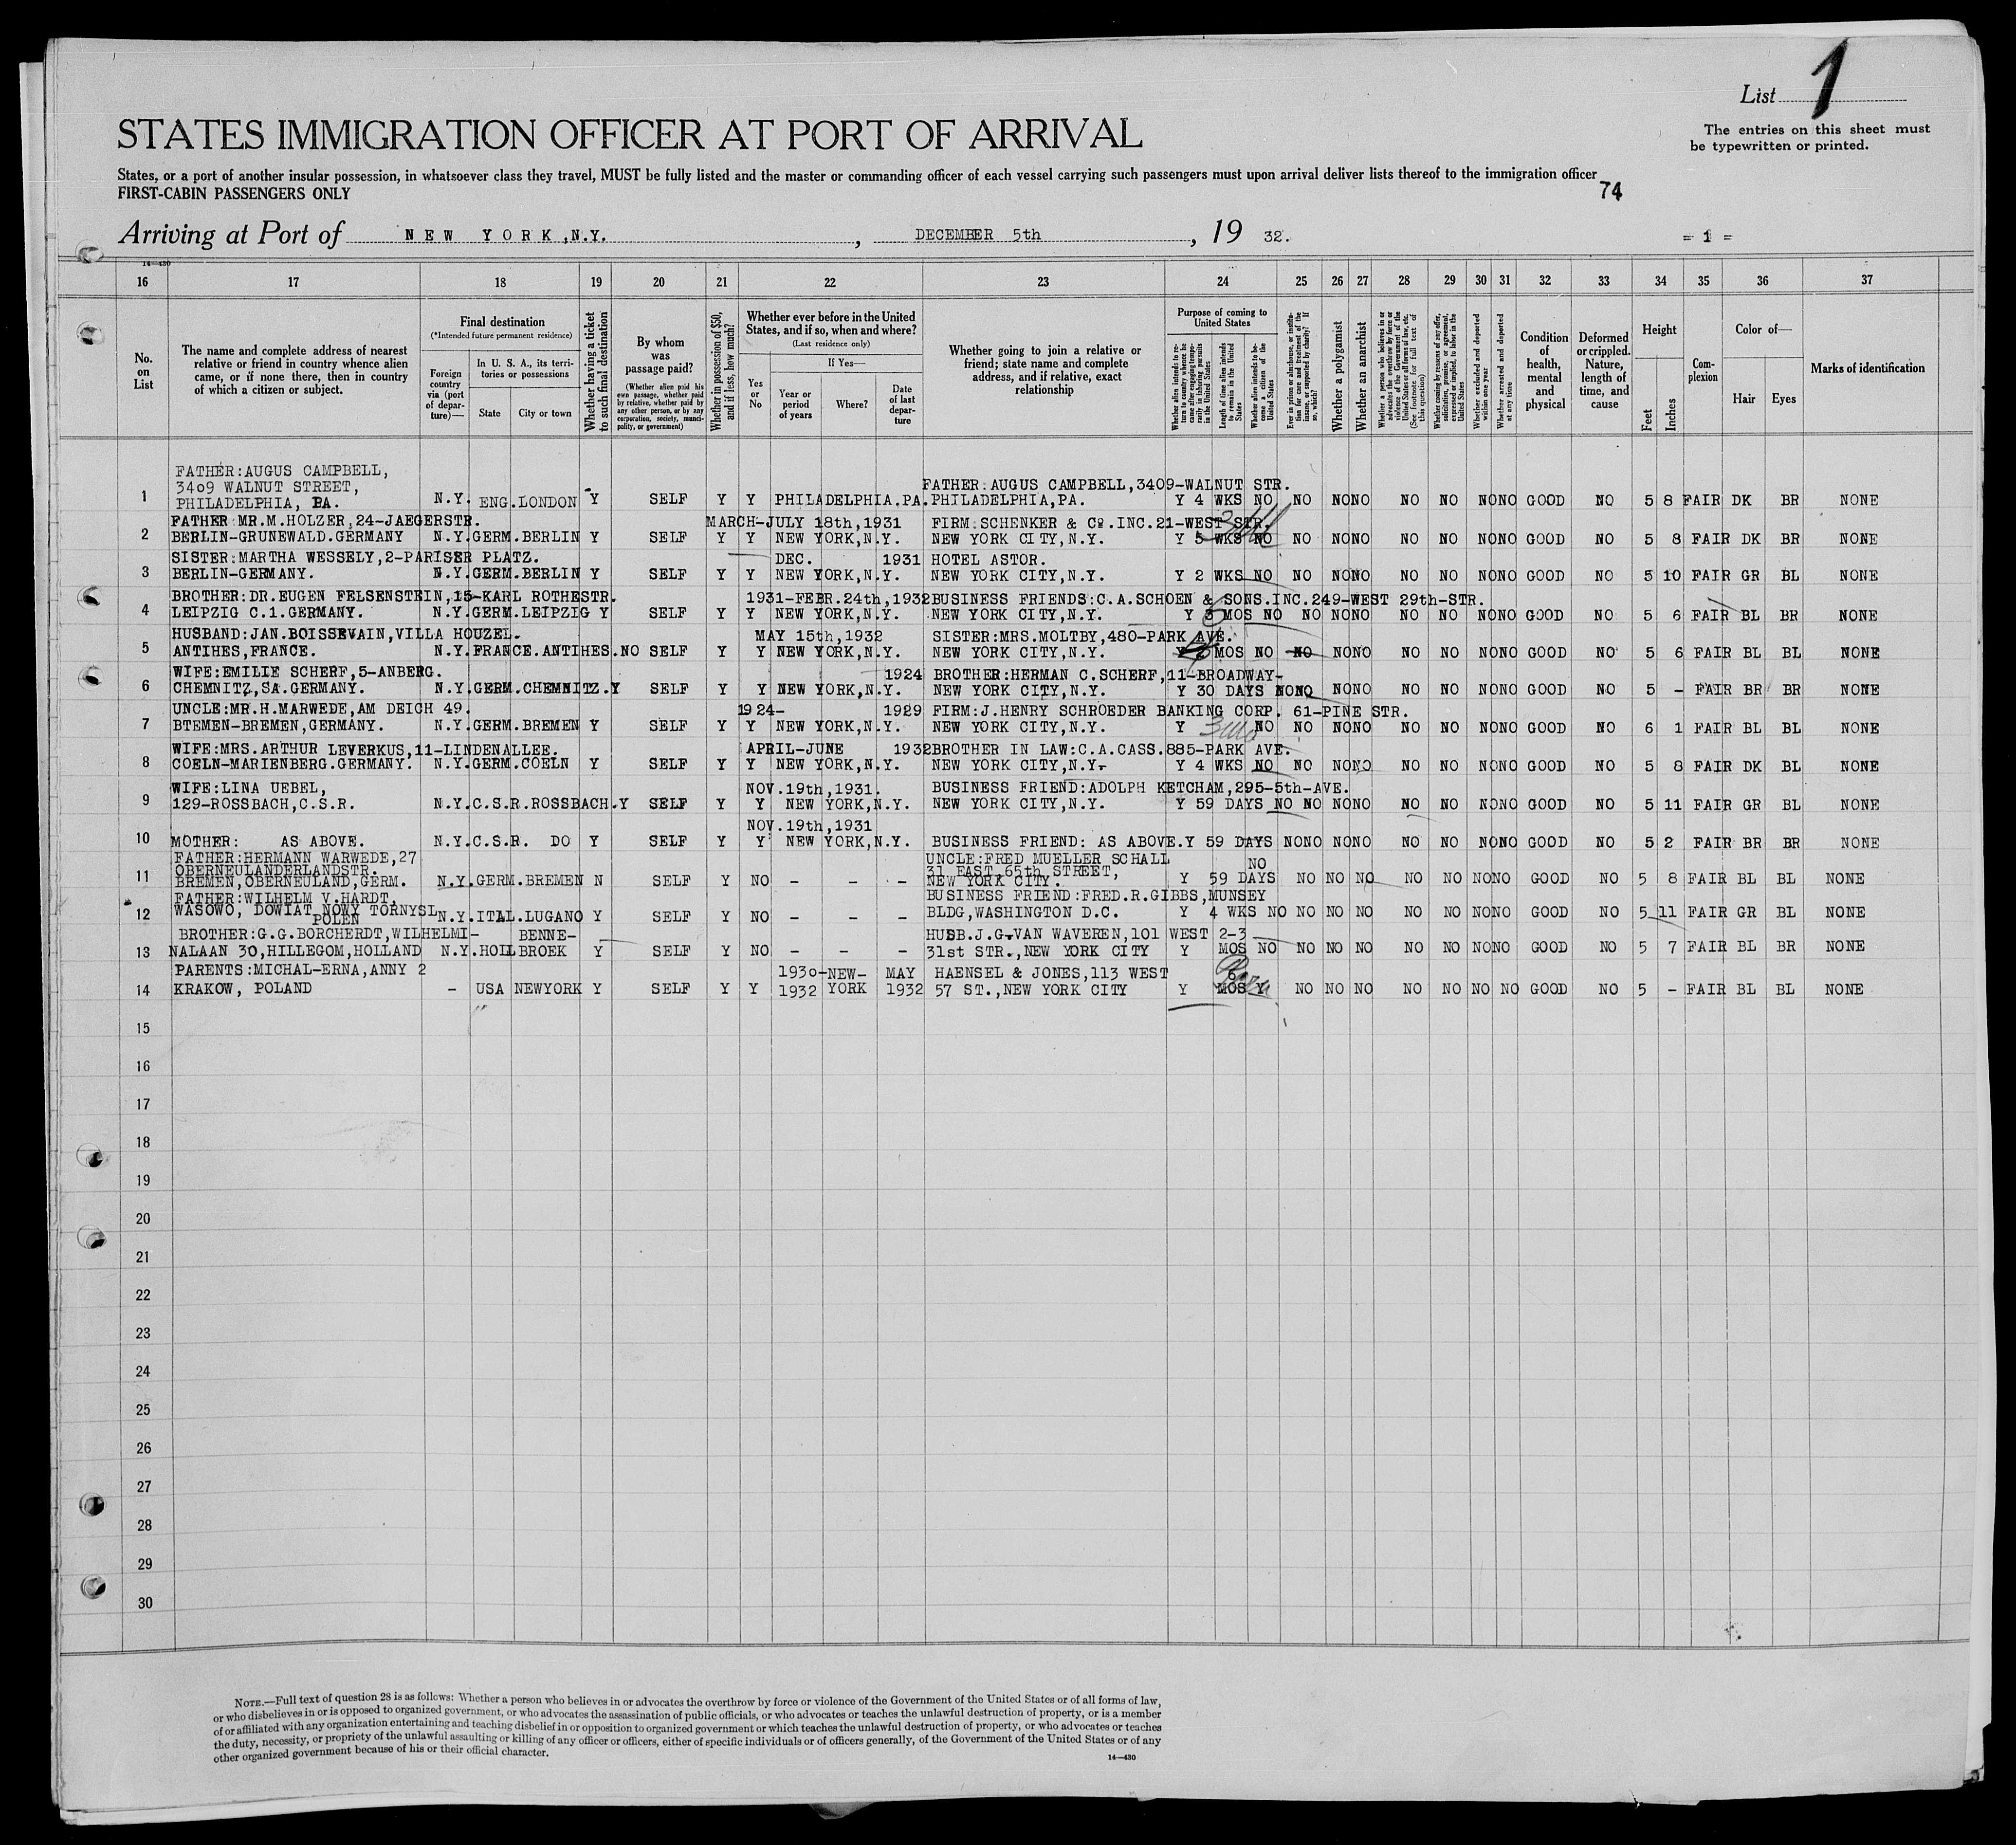 List 1
The entries on this sheet must
be typewritten or printed.
STATES IMMIGRATION OFFICER AT PORT OF ARRIVAL
States, or a port of another insular possession, in whatsoever class they travel, MUST be fully listed and the master or commanding officer of each vessel carrying such passengers must upon arrival deliver lists thereof to the immigration officer
FIRST-CABIN PASSENGERS ONLY
74
Arriving at Port of NEW YORK, N.Y. , DECEMBER 5th , 19 32. = 1 =
14—430
16 17 18 19 20 21 22 23 24 25 26 27 28 29 30 31 32 33 34 35 36 37
No. on List
The name and complete address of nearest relative or friend in country whence alien came, or if none there, then in country of which a citizen or subject.
Final destination
(*Intended future permanent residence)
Foreign country via (port of departure)—
In U. S. A., its territories or possessions
State
City or town
Whether having a ticket to such final destination
By whom was passage paid?
(Whether alien paid his own passage, whether paid by relative, whether paid by any other person, or by any corporation, society, municipality, or government)
Whether in possession of $50, and if less, how much?
Whether ever before in the United States, and if so, when and where?
(Last residence only)
Yes or No
If Yes—
Year or period of years
Where?
Date of last departure
Whether going to join a relative or friend; state name and complete address, and if relative, exact relationship
Purpose of coming to United States
Whether alien intends to return to country whence he came after engaging temporarily in laboring pursuits in the United States
Length of time alien intends to remain in the United States
Whether alien intends to become a citizen of the United States
Ever in prison or almshouse, or institution for care and treatment of the insane, or supported by charity? If so, which?
Whether a polygamist
Whether an anarchist
Whether a person who believes in or advocates the overthrow by force or violence of the Government of the United States or all forms of law, etc. (See footnote for full text of this question)
Whether coming by reasons of any offer, solicitation, promise, or agreement, expressed or implied, to labor in the United States
Whether excluded and deported within one year
Whether arrested and deported at any time
Condition of health, mental and physical
Deformed or crippled. Nature, length of time, and cause
Height
Feet
Inches
Complexion
Color of—
Hair
Eyes
Marks of identification
FATHER:AUGUS CAMPBELL,
3409 WALNUT STREET, FATHER:AUGUS CAMPBELL,3409-WALNUT STR.
1 PHILADELPHIA, PA. N.Y. ENG.LONDON Y SELF Y Y PHILADELPHIA.PA. PHILADELPHIA,PA. Y 4 WKS NO NO NO NO NO NO NO NO GOOD NO 5 8 FAIR DK BR NONE
FATHER:MR.M.HOLZER,24-JAEGERSTR. MARCH-JULY 18th,1931 FIRM:SCHENKER & Co.INC.21-WEST STR.
2 BERLIN-GRUNEWALD.GERMANY N.Y.GERM.BERLIN Y SELF Y Y NEW YORK,N.Y. NEW YORK CITY,N.Y. Y 5 WKS NO NO NO NO NO NO NO NO GOOD NO 5 8 FAIR DK BR NONE
SISTER:MARTHA WESSELY,2-PARISER PLATZ. DEC. 1931 HOTEL ASTOR.
3 BERLIN-GERMANY. N.Y.GERM.BERLIN Y SELF Y Y NEW YORK,N.Y. NEW YORK CITY,N.Y. Y 2 WKS NO NO NO NO NO NO NO NO GOOD NO 5 10 FAIR GR BL NONE
BROTHER:DR.EUGEN FELSENSTEIN,15-KARL ROTHESTR. 1931-FEBR.24th,1932 BUSINESS FRIENDS:C.A.SCHOEN & SONS.INC.249-WEST 29th-STR.
4 LEIPZIG C.1.GERMANY. N.Y.GERM.LEIPZIG Y SELF Y Y NEW YORK,N.Y. NEW YORK CITY,N.Y. Y 3 MOS NO NO NO NO NO NO NO NO GOOD NO 5 6 FAIR BL BR NONE
HUSBAND:JAN.BOISSEVAIN,VILLA HOUZEL. MAY 15th,1932 SISTER:MRS.MOLTBY,480-PARK AVE.
5 ANTIHES,FRANCE. N.Y.FRANCE.ANTIHES.NO SELF Y Y NEW YORK,N.Y. NEW YORK CITY,N.Y. Y MOS NO NO NO NO NO NO NO NO GOOD NO 5 6 FAIR BL BL NONE
WIFE:EMILIE SCHERF,5-ANBERG. 1924 BROTHER:HERMAN C.SCHERF,11-BROADWAY-
6 CHEMNITZ,SA.GERMANY. N.Y.GERM.CHEMNITZ.Y SELF Y Y NEW YORK,N.Y. NEW YORK CITY,N.Y. Y 30 DAYS NO NO NO NO NO NO NO NO GOOD NO 5 - FAIR BR BR NONE
UNCLE:MR.H.MARWEDE,AM DEICH 49. 1924- 1929 FIRM:J.HENRY SCHROEDER BANKING CORP. 61-PINE STR.
7 BTEMEN-BREMEN,GERMANY. N.Y.GERM.BREMEN Y SELF Y Y NEW YORK,N.Y. NEW YORK CITY,N.Y. Y 3 mo NO NO NO NO NO NO NO NO GOOD NO 6 1 FAIR BL BL NONE
WIFE:MRS.ARTHUR LEVERKUS,11-LINDENALLEE. APRIL-JUNE 1932 BROTHER IN LAW:C.A.CASS.885-PARK AVE.
8 COELN-MARIENBERG.GERMANY. N.Y.GERM.COELN Y SELF Y Y NEW YORK,N.Y. NEW YORK CITY,N.Y. Y 4 WKS NO NO NO NO NO NO NO NO GOOD NO 5 8 FAIR DK BL NONE
WIFE:LINA UEBEL, NOV.19th,1931. BUSINESS FRIEND:ADOLPH KETCHAM,295-5th-AVE.
9 129-ROSSBACH,C.S.R. N.Y.C.S.R.ROSSBACH.Y SELF Y Y NEW YORK,N.Y. NEW YORK CITY,N.Y. Y 59 DAYS NO NO NO NO NO NO NO NO GOOD NO 5 11 FAIR GR BL NONE
NOV.19th,1931
10 MOTHER: AS ABOVE. N.Y.C.S.R. DO Y SELF Y Y NEW YORK,N.Y. BUSINESS FRIEND: AS ABOVE. Y 59 DAYS NO NO NO NO NO NO NO NO GOOD NO 5 2 FAIR BR BR NONE
FATHER:HERMANN WARWEDE,27 UNCLE:FRED MUELLER SCHALL
OBERNEULANDERLANDSTR. 31 EAST 65th STREET, NO
11 BREMEN,OBERNEULAND,GERM. N.Y.GERM.BREMEN N SELF Y NO - - - NEW YORK CITY. Y 59 DAYS NO NO NO NO NO NO NO GOOD NO 5 8 FAIR BL BL NONE
FATHER:WILHELM V.HARDT, BUSINESS FRIEND:FRED.R.GIBBS,MUNSEY
12 WASOWO, DOWIAT NOWY TORNYSL N.Y.ITAL.LUGANO Y SELF Y NO - - - BLDG,WASHINGTON D.C. Y 4 WKS NO NO NO NO NO NO NO NO GOOD NO 5 11 FAIR GR BL NONE
POLEN
BROTHER:G.G.BORCHERDT,WILHELMI- BENNE- HUSB.J.G.VAN WAVEREN,101 WEST 2-3
13 NALAAN 30,HILLEGOM,HOLLAND N.Y.HOLL BROEK Y SELF Y NO - - - 31st STR.,NEW YORK CITY Y MOS NO NO NO NO NO NO NO NO GOOD NO 5 7 FAIR BL BR NONE
PARENTS:MICHAL-ERNA,ANNY 2 1930-NEW- MAY HAENSEL & JONES,113 WEST 6
14 KRAKOW, POLAND - USA NEWYORK Y SELF Y Y 1932 YORK 1932 57 ST.,NEW YORK CITY Y MOS Y NO NO NO NO NO NO NO GOOD NO 5 - FAIR BL BL NONE
15
16
17
18
19
20
21
22
23
24
25
26
27
28
29
30
NOTE.—Full text of question 28 is as follows: Whether a person who believes in or advocates the overthrow by force or violence of the Government of the United States or of all forms of law,
or who disbelieves in or is opposed to organized government, or who advocates the assassination of public officials, or who advocates or teaches the unlawful destruction of property, or is a member
of or affiliated with any organization entertaining and teaching disbelief in or opposition to organized government or which teaches the unlawful destruction of property, or who advocates or teaches
the duty, necessity, or propriety of the unlawful assaulting or killing of any officer or officers, either of specific individuals or of officers generally, of the Government of the United States or of any
other organized government because of his or their official character.
14—430